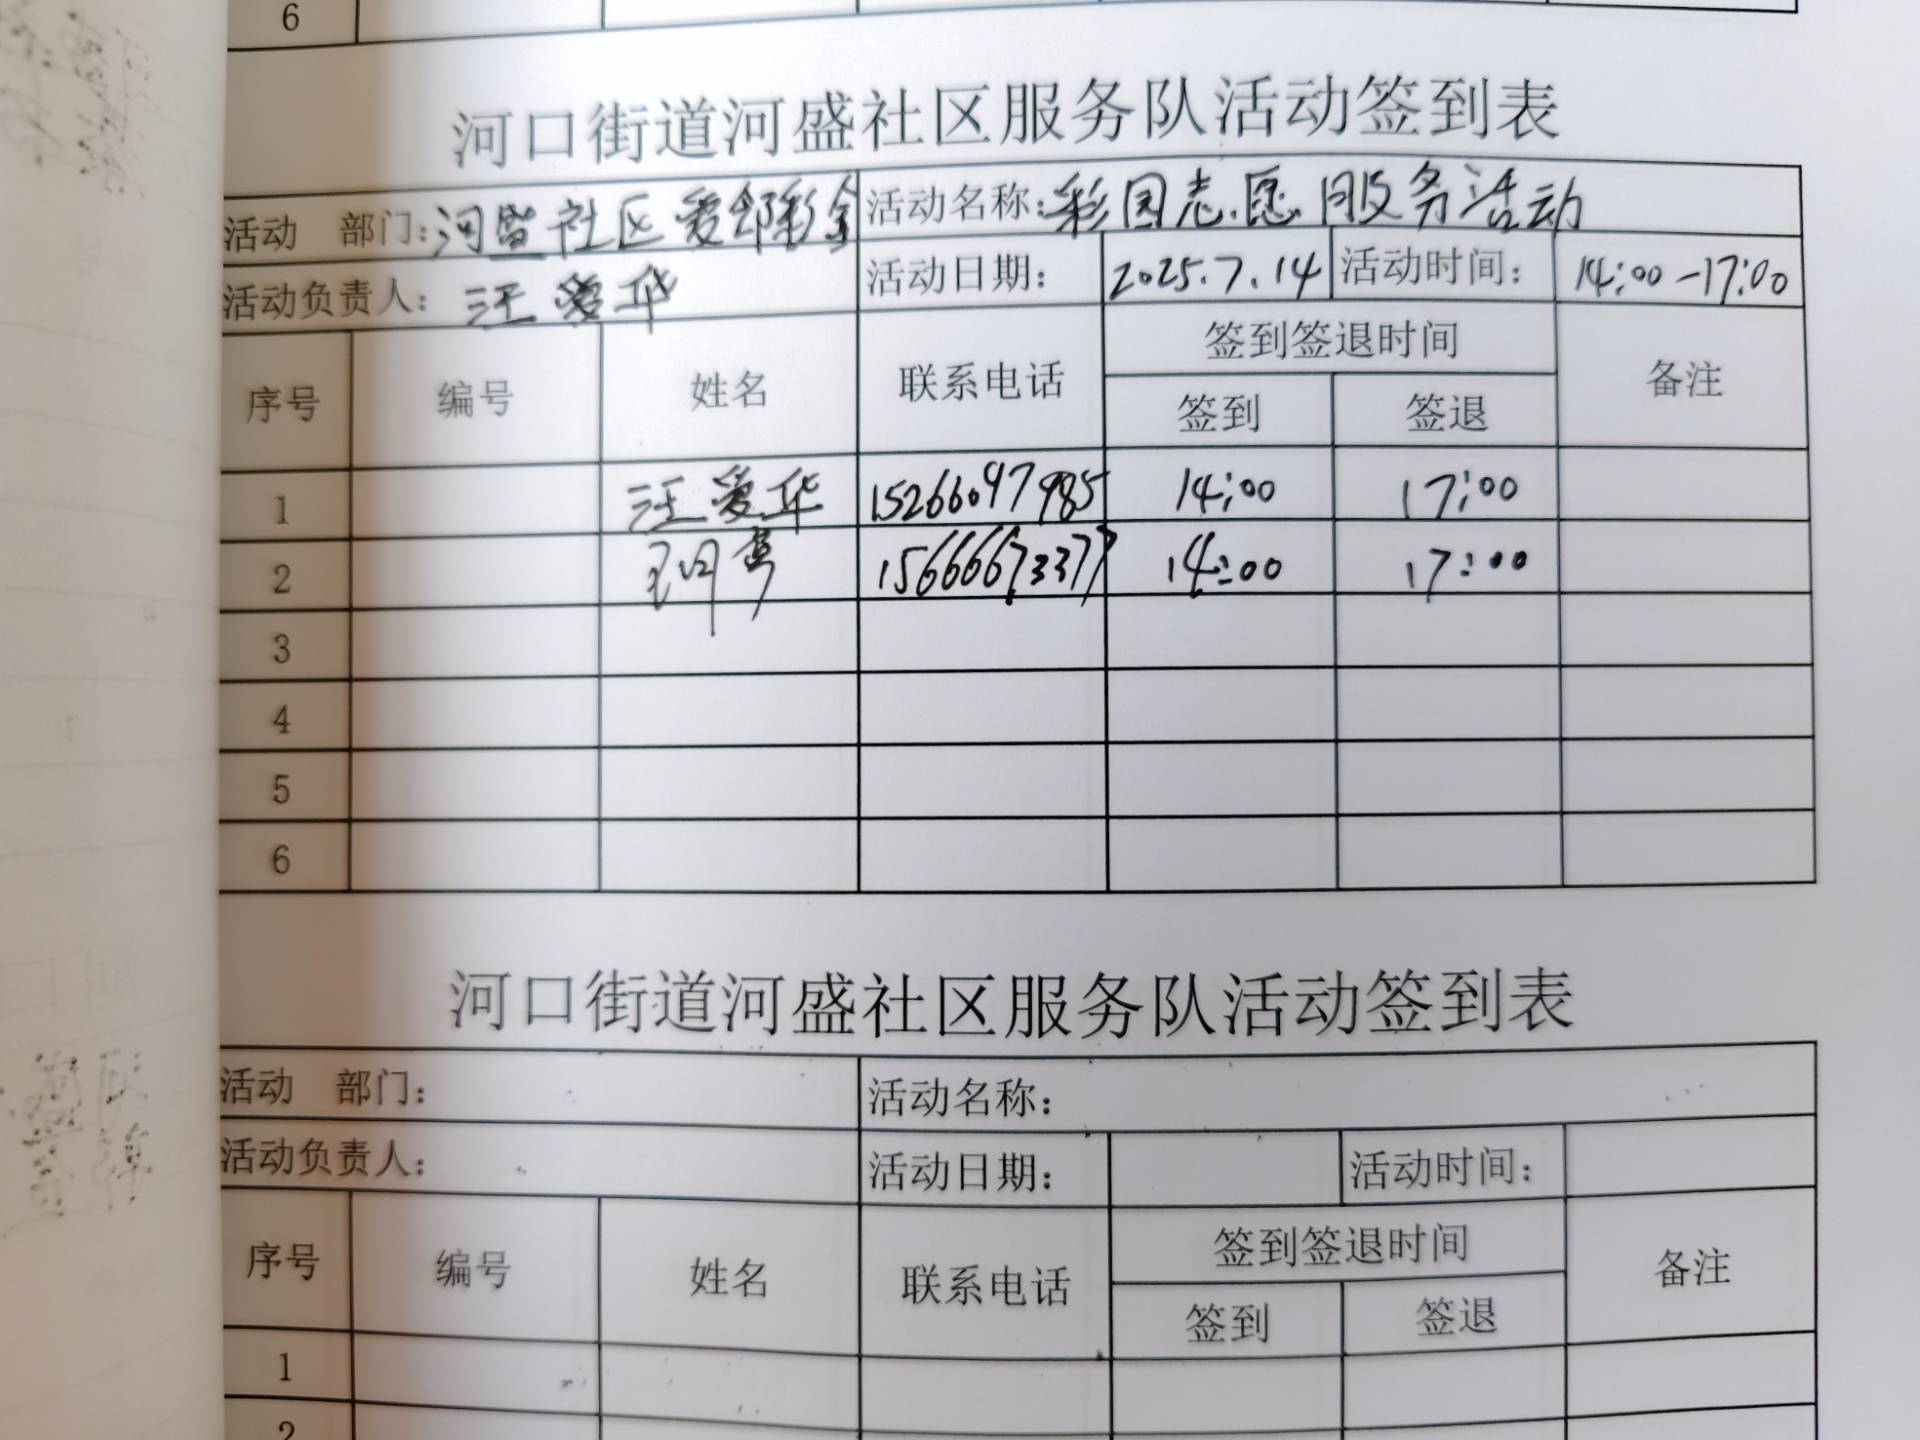 6
河口街道河盛社区服务队活动签到表
活动 部门:河盛社区爱邻彩金 活动名称:彩园志愿服务活动
活动负责人: 汪爱华 活动日期: 2025.7.14 活动时间: 14:00-17:00
序号 编号 姓名 联系电话 签到签退时间 备注
签到 签退
1 汪爱华 15266097985 14:00 17:00
2 15666673377 14:00 17:00
3
4
5
6
河口街道河盛社区服务队活动签到表
活动 部门: 活动名称:
活动负责人: 活动日期: 活动时间:
序号 编号 姓名 联系电话 签到签退时间 备注
签到 签退
1
2